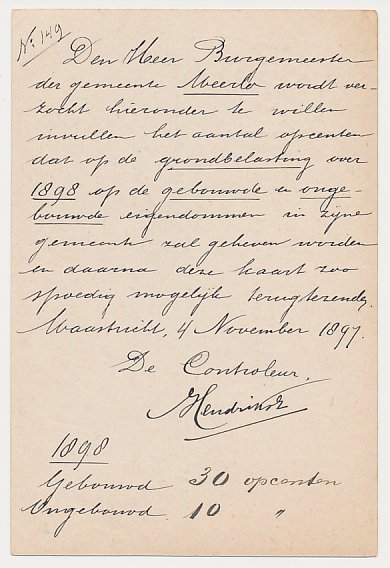 No 149
Den Heer Burgemeester
der gemeente Meerlo wordt ver-
zocht hieronder te willen
invullen het aantal opcenten
dat op de grondbelasting over
1898 op de gebouwde en onge-
bouwde eigendommen in zijne
gemeente zal geheven worden
en daarna deze kaart zoo
spoedig mogelijk terugtezenden.
Maastricht, 4 November 1897.
De Controleur,
1898
Gebouwd 30 opcenten
Ongebouwd 10 "